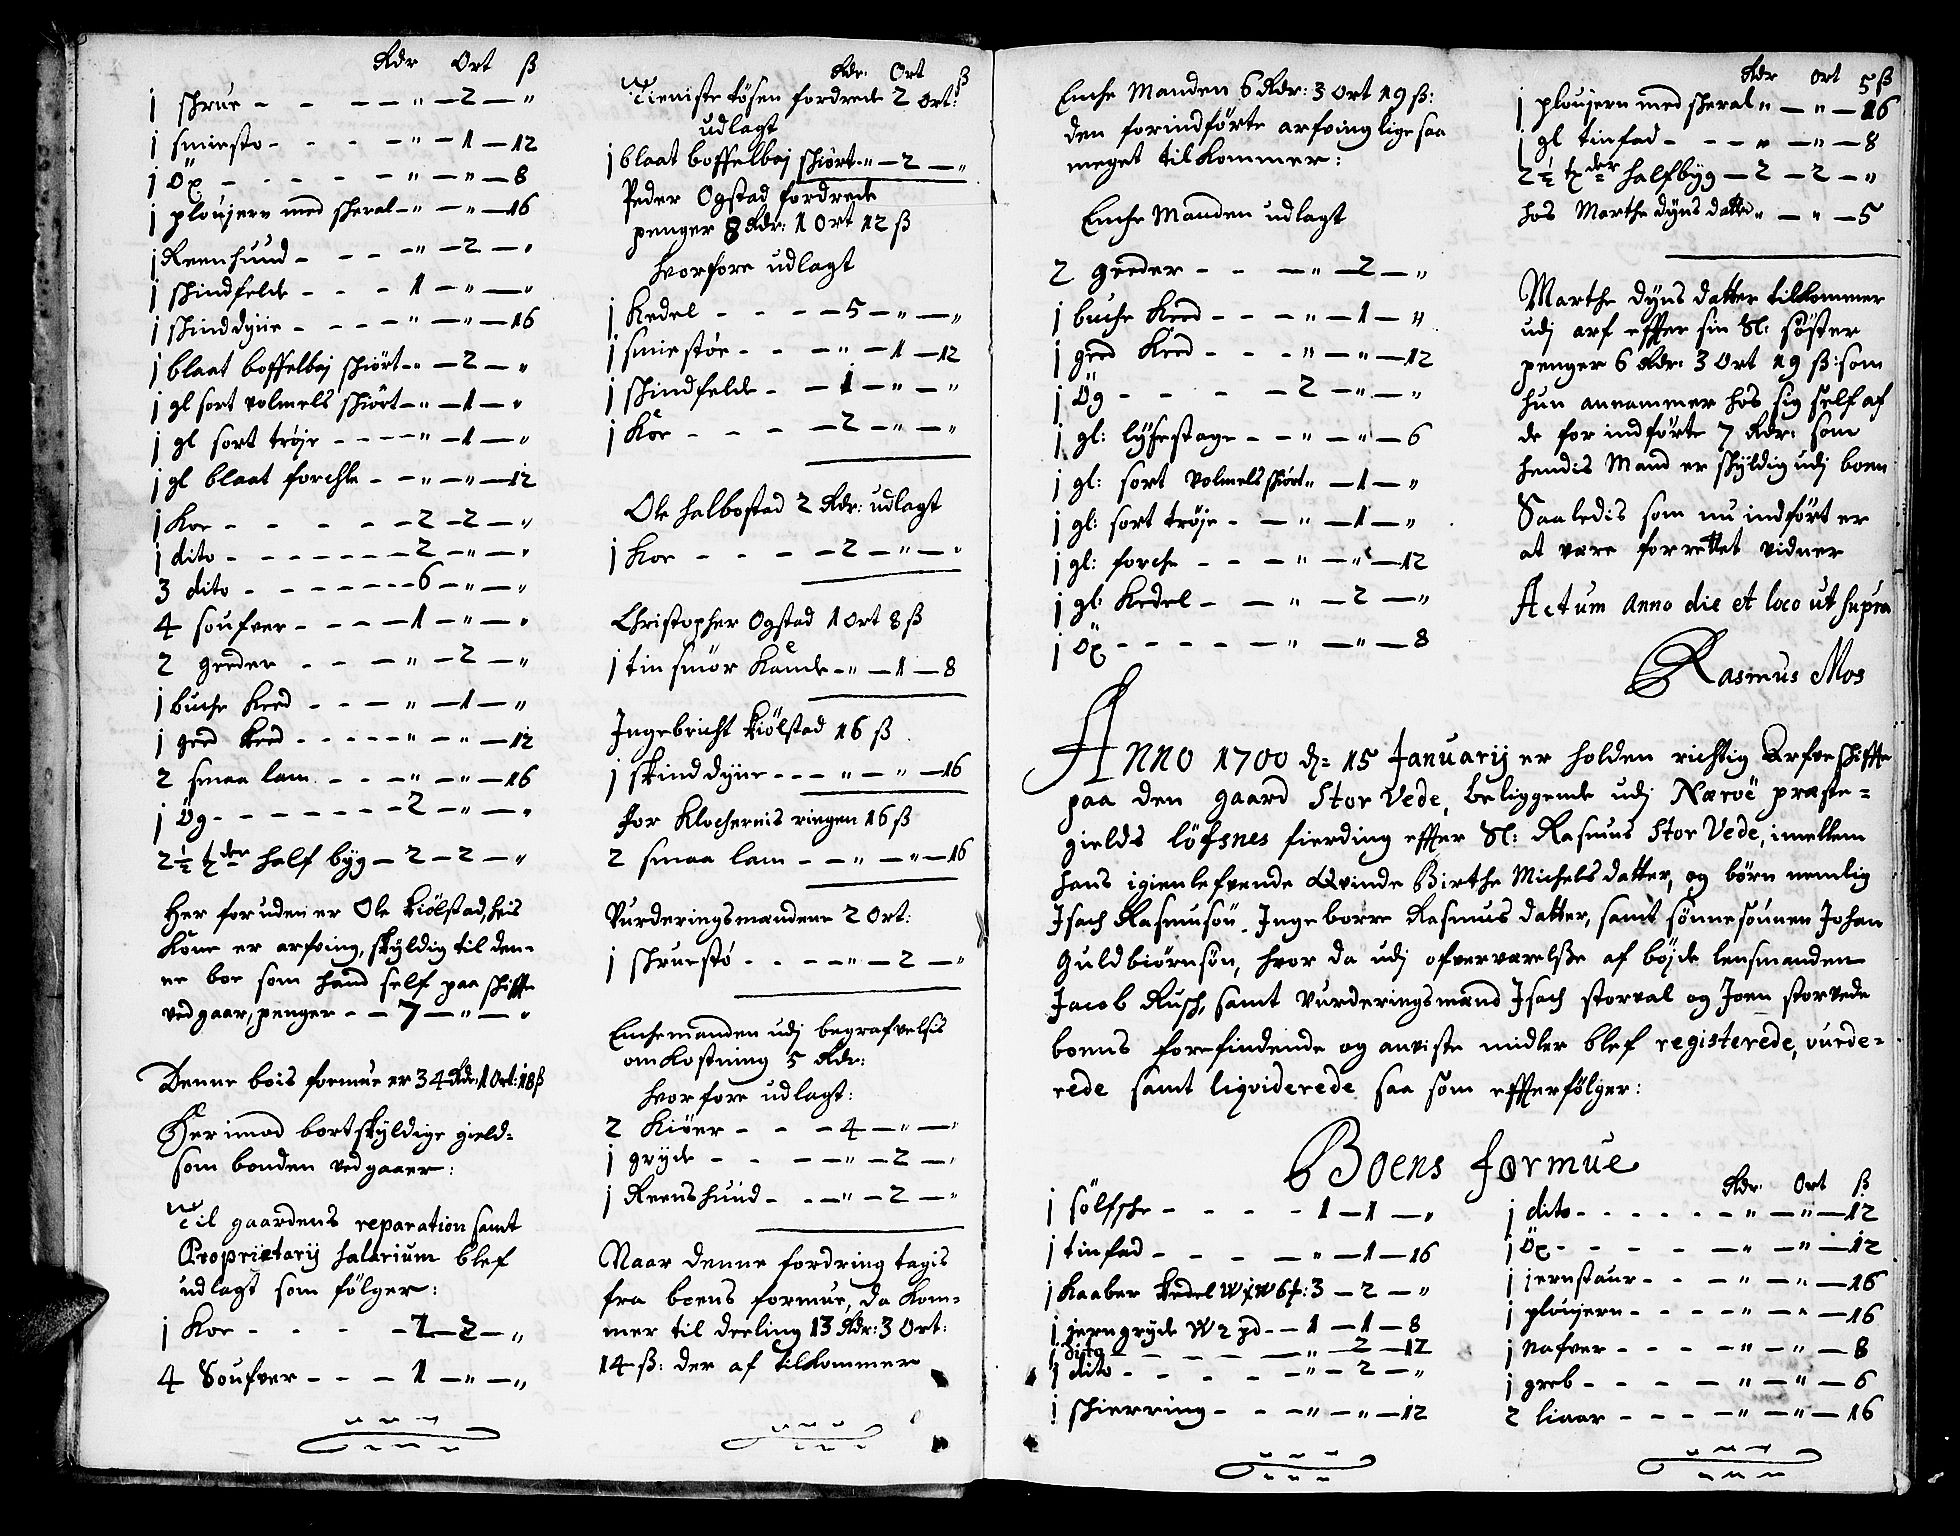 Rdr Ort ß
1 schrue - - - - " - 2 - "
1 smiesto - - - - " - 1 - 12
1 Öx - - - - " - " - 8
1 ploujern med skeral - " - " - 16
1 Reenhuud - - - - " - 2 - "
1 skindfelde - - - 1 - " - "
1 skinddyne - - - - " - " - 16
1 blaat boffelbaj skiört - " - 2 - "
1 gl sort volmels skiört - " - 1 - "
1 gl sort tröje - - - - " - 1 - "
1 gl blaat forchle - - " - " - 12
1 Koe - - - - - 2 - 2 - "
1 dito - - - - - - 2 - " - "
3 dito - - - - - - 6 - " - "
4 soufver - - - - 1 - " - "
2 geeder - - - " - 2 - "
1 buche Keed - - - " - 1 - "
1 geed Keed - - - - " - " - 12
2 smaa lam - - - " - " - 16
1 Ög - - - - - - 2 - " - "
2½ tder half byg - 2 - 2 - "
Her foruden er Ole Kiölstad, hvis
Kone er arfving, skyldig til den-
ne boe som hand self paa skiffte
vedgaar, penger - - 7 - " - "
Denne bois formue er 34 Rdr: 1 Ort: 18 ß
Her imod bortskyldige gield-
som bonden vedgaaer:
Til gaardens reparation samt
Proprietarij Salarium blef
udlagt som følger:
1 Koe - - - - 2 - 2 - "
4 Soufver - - - 1 - " - "
Rdr: Ort ß
Tieniste tösen fordrede 2 Ort:
udlagt
1 blaat boffelbaj skiört - " - 2 - "
Peder Ogstad fordrede
penger 8 Rdr: 1 Ort 12 ß
hvorfore udlagt
1 Kedel - - - - 5 - " - "
1 smiestöe - - - " - 1 - 12
1 skindfelde - - 1 - " - "
1 Koe - - - - 2 - " - "
Ole halbostad 2 Rdr: udlagt
1 Koe - - - - 2 - " - "
Christopher Ogstad 1 Ort 8 ß
1 tin smör Kande - " - 1 - 8
Ingebricht Kiölstad 16 ß
1 skinddyne - - - " - " - 16
For Klochernis ringen 16 ß
2 smaa lam - - " - " - 16
Vurderingsmændene 2 Ort:
1 schruestö - - - - " - 2 - "
Enchemanden udj begrafvelsis
omkostning 5 Rdr:
hvorfore udlagt:
2 Kiöer - - - 4 - " - "
1 gryde - - - " - 2 - "
1 Reenshuud - - - " - 2 - "
Naar denne fordring tagis
fra boens formue, da kom-
mer til deeling 13 Rdr: 3 Ort:
14 ß: der af tilkommer
Enche Manden 6 Rdr: 3 Ort 19 ß:
den forindførte arfving lige saa
meget tilkommer:
Enche Manden udlagt
2 geeder - - - " - 2 - "
1 buche Keed - - - " - 1 - "
1 geed Keed - - - " - " - 12
1 Ög - - - - 2 - " - "
1 gl: lysestage - - " - " - 6
1 gl: sort volmels skiört " - 1 - "
1 gl: sort tröje - - " - 1 - "
1 gl: forche - - - " - " - 12
1 gl: Kedel - - " - 2 - "
1 Öx - - - - - " - " - 8
Rdr Ort ß
1 ploujern med skeral " - " - 16
1 gl tinfad - - - " - " - 8
2½ tder half byg - 2 - 2 - "
hos Marthe dyns datter " - " - 5
Marthe dyns datter tilkommer
udj arf effter sin Sl: søster
penger 6 Rdr: 3 Ort 19 ß: som
hun annammer hos sig self af
de forindførte 7 Rdr: som
hendis Mand er skyldig udj boen
Saaledis som nu indført er
at være forrettet vidner
Actum Anno die et loco ut supra
Rasmus Mos
Anno 1700 d: 15 Januarij er holden richtig Arfveskiffte
paa den gaard Stor Vede, beliggende udj Næröe præste-
gields löfsnes fierding effter Sl: Rasmus Stor Vede, imellem
hans igienlefvende Qvinde Birthe Michels datter, og børn nemlig
Isach Rasmusön, Ingeborre Rasmus datter, samt sønnesönnen Johan
Guldbiörnsön, hvor da udj ofverværelsse af böjde lensmanden
Jacob Rusch, samt vurderingsmænd Isach storval og Joen storvede
boens forefindende og anviste midler blef registerede, vurde-
rede samt liqviderede saa som effterfølger:
Boens formue
1 sölfske - - - - 1 - 1 - "
1 tinfad - - - - " - 1 - 16
1 Kaaber Kedel W 1 W 6 : 3 - 2 - "
1 jerngryde W 2 pd - - 1 - 1 - 8
1 dito - - - - - " - 2 - 12
1 dito - - - - - " - 2 - "
1 skierring - - - " - " - 12
Rdr: Ort ß
1 dito - - - - - - " - " - 12
1 Öx - - - - - " - " - 12
1 jernstaur - - - " - " - 16
1 ploujern - - - - " - " - 16
1 nafver - - - - " - " - 8
1 greb - - - - " - " - 6
2 liaar - - - - " - " - 16